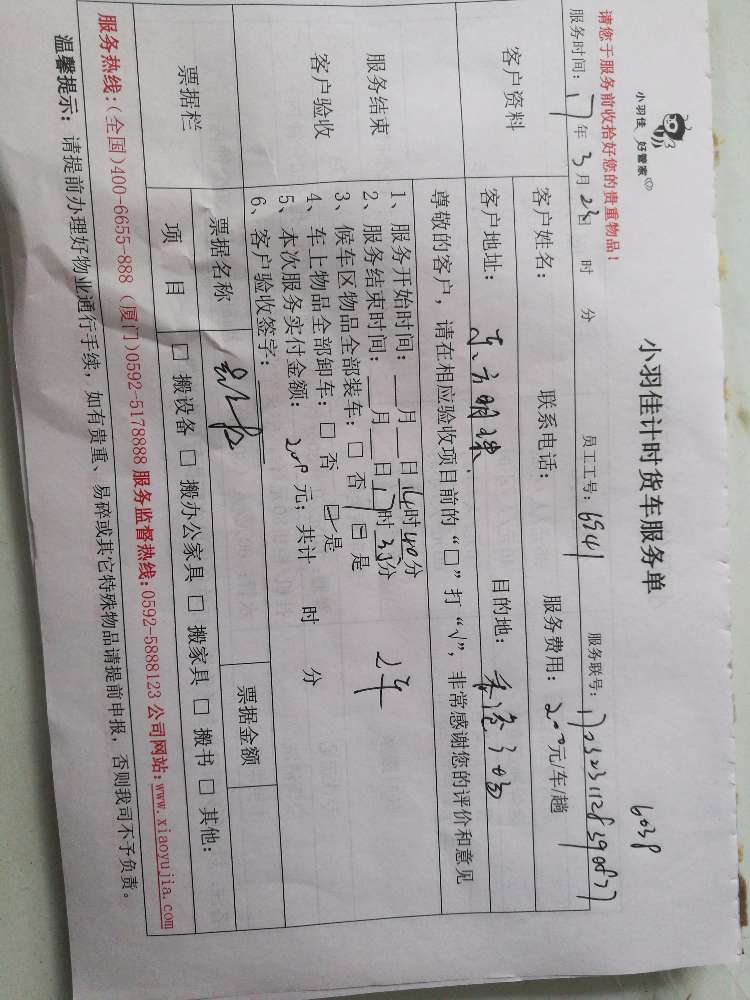 小羽佳 好管家
小羽佳计时货车服务单
6038
请您于服务前收拾好您的贵重物品！
服务时间：17年3月23日 时 分 员工工号：6941 服务联号：
客户资料
客户姓名： 联系电话： 服务费用：200元/车/趟
客户地址：东方明珠 目的地：
服务结束
客户验收
尊敬的客户，请在相应验收项目前的“□”打“√”，非常感谢您的评价和意见
1、服务开始时间：__月__日14时40分
2、服务结束时间：__月__日17时35分 2车
3、候车区物品全部装车：□ 否 □ 是
4、车上物品全部卸车：□ 否 □ 是
5、本次服务实付金额：200元；共计 时 分
6、客户验收签字：
票据栏
票据名称 票据金额
项 目 □ 搬设备 □ 搬办公家具 □ 搬家具 □ 搬书 □ 其他：
服务热线:(全国)400-6655-888 (厦门)0592-5178888 服务监督热线:0592-5888123 公司网站:www.xiaoyujia.com
温馨提示：请提前办理好物业通行手续，如有贵重、易碎或其它特殊物品请提前申报，否则我司不予负责。